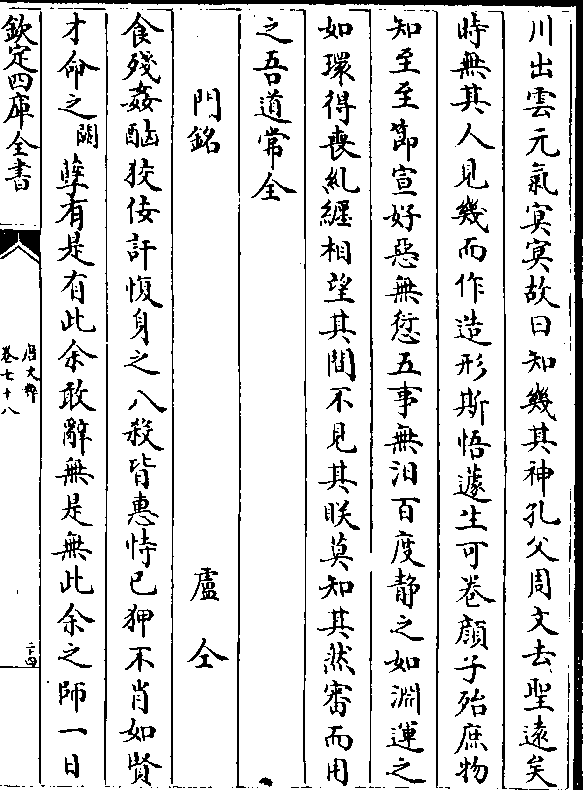 川出雲元氣㝠㝠故曰知幾其神孔父周文去聖遠矣
時無其人見幾而作造形斯悟蘧生可卷顔子殆庶物
知至至節宣好惡無愆五事無汨百度静之如淵運之
如環得喪糺纆相望其間不見其眹莫知其然審而用
之吾道常全
門銘 盧仝
貪殘姦酗狡佞訐愎身之八殺背惠恃己狎不肖如賢
才命之闕孽有是有此余敢辭無是無此余之師一日
欽定四庫全書
唐文粹
卷七十八
二十四